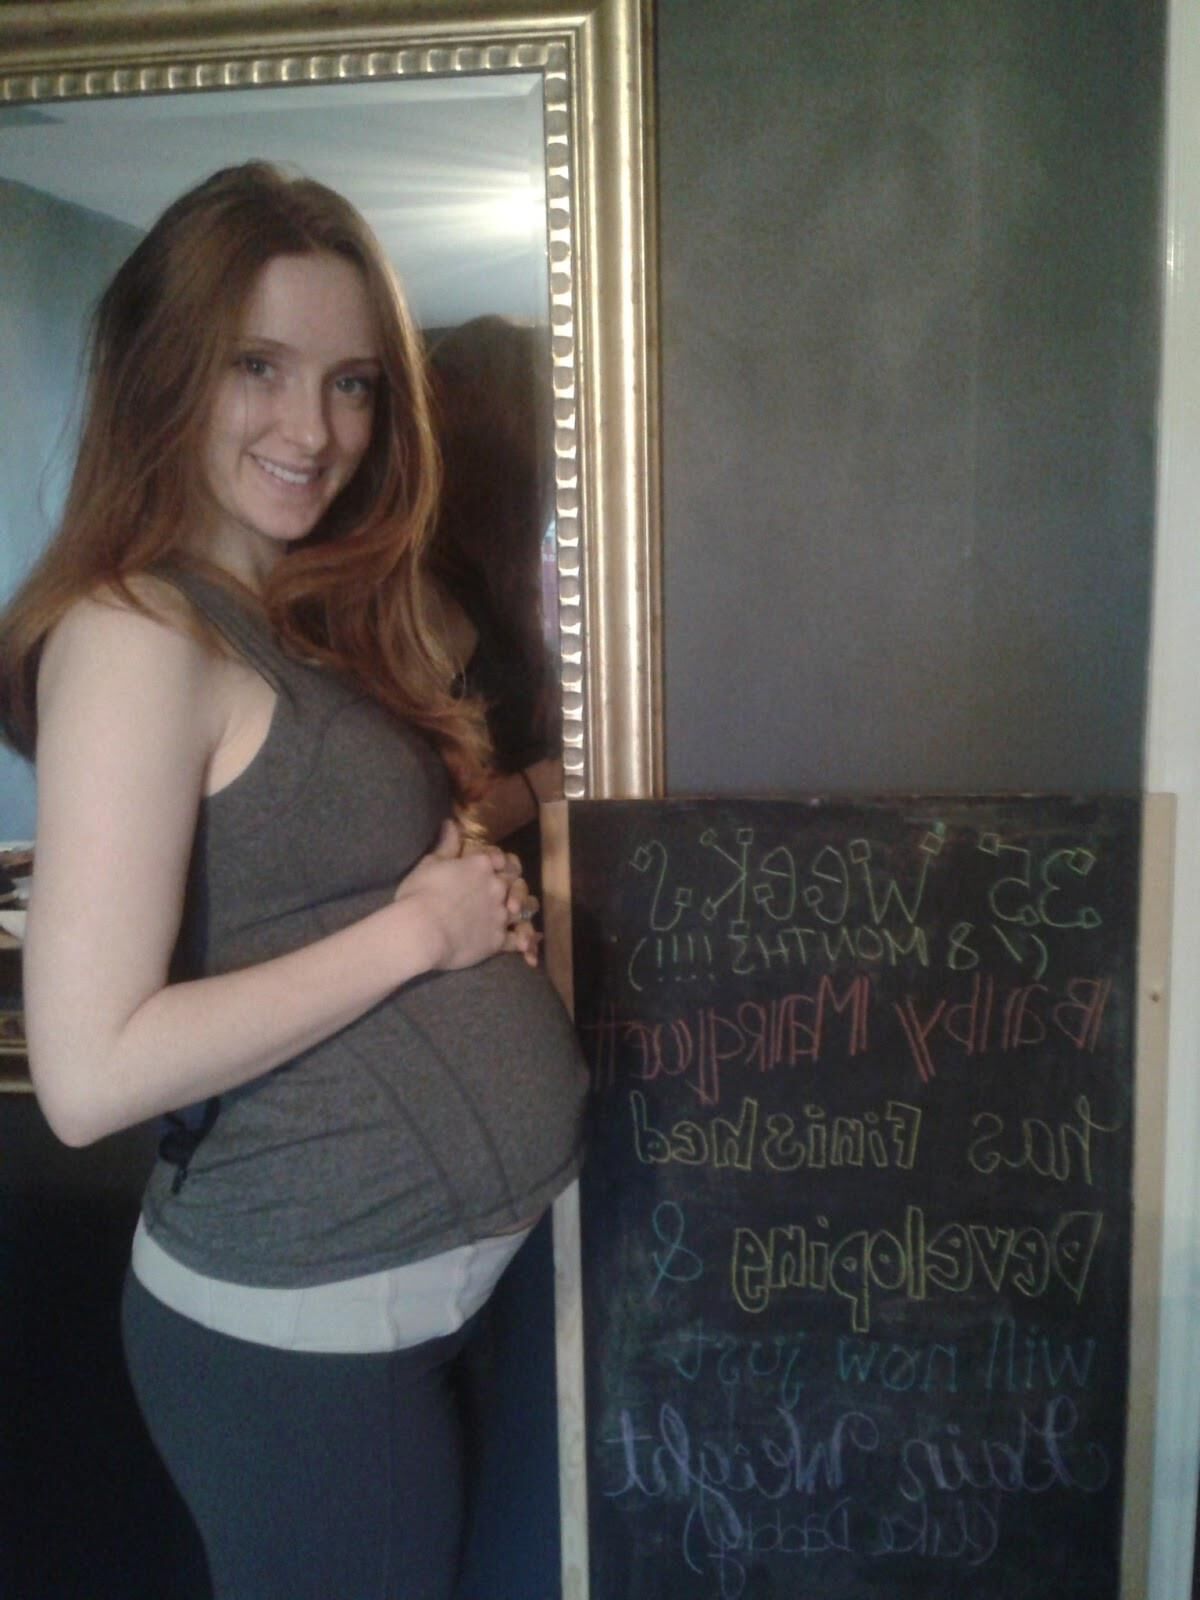 35 WEEKS
(/8 MONTHS!!!!)
Baby Marquett
has Finished
Developing &
will now just
Gain Weight
(Like Daddy)